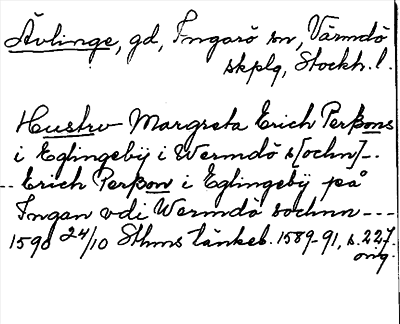 Ävlinge, gd, Ingarö sn, Värmdö
skplg, Stockh. l.
Hustrv Margreta Erich Perßons
i Eglingebÿ i Wermdö s[ochn]_.
.. Erich Perßon i Eglingebÿ på
Ingan vdi Wermdö sochnn _ _ _
1590 24/10 Sthms tänkeb. 1589-91, s. 227.
orig.